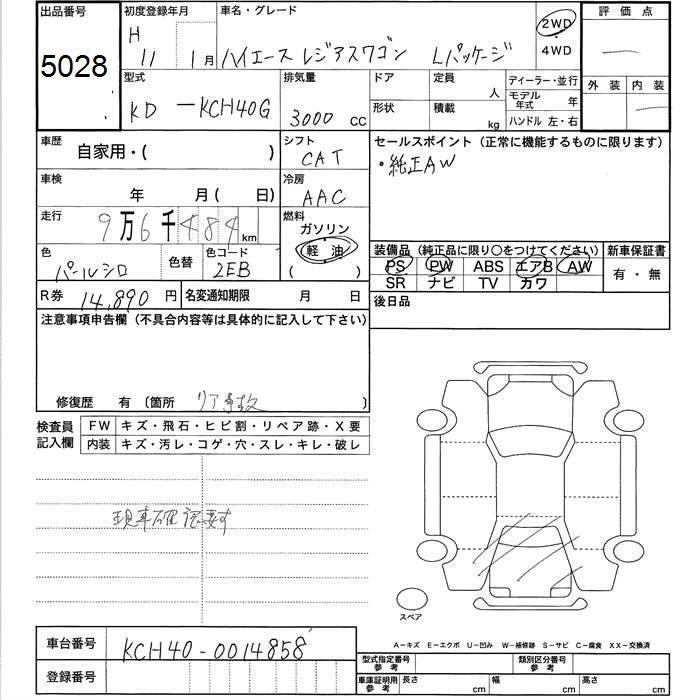 出品番号
5028
初度登録年月
H
11 1月
車名・グレード
ハイエース レジアスワゴン Lパッケージ
2WD
4WD
評価点
外装 内装
型式
KD-KCH40G
排気量
3000 CC
ドア
形状
定員
人
積載
kg
ディーラー・並行
モデル年式 年
ハンドル 左・右
車歴
自家用・( )
シフト
CAT
車検
年 月( 日)
冷房
AAC
走行
9万6千484km
燃料
ガソリン
軽油
( )
色
パールシロ
色替
色コード
2EB
R券 14,890 円
名変通知期限 月 日
セールスポイント(正常に機能するものに限ります)
・純正AW
装備品(純正品に限り○をつけてください)
PS PW ABS エアB AW
SR ナビ TV カワ
新車保証書
有・無
後日品
注意事項申告欄(不具合内容等は具体的に記入して下さい)
修復歴 有 〔箇所 リア事故 〕
検査員記入欄
FW キズ・飛石・ヒビ割・リペア跡・X要
内装 キズ・汚レ・コゲ・穴・スレ・キレ・破レ
現車確認要す
スペア
A−キズ E−エクボ U−凹み W−補修跡 S−サビ C−腐食 XX−交換済
車台番号 KCH40-0014858
登録番号
型式指定番号参考
類別区分番号参考
車庫証明用参考 長さ cm 幅 cm 高さ cm